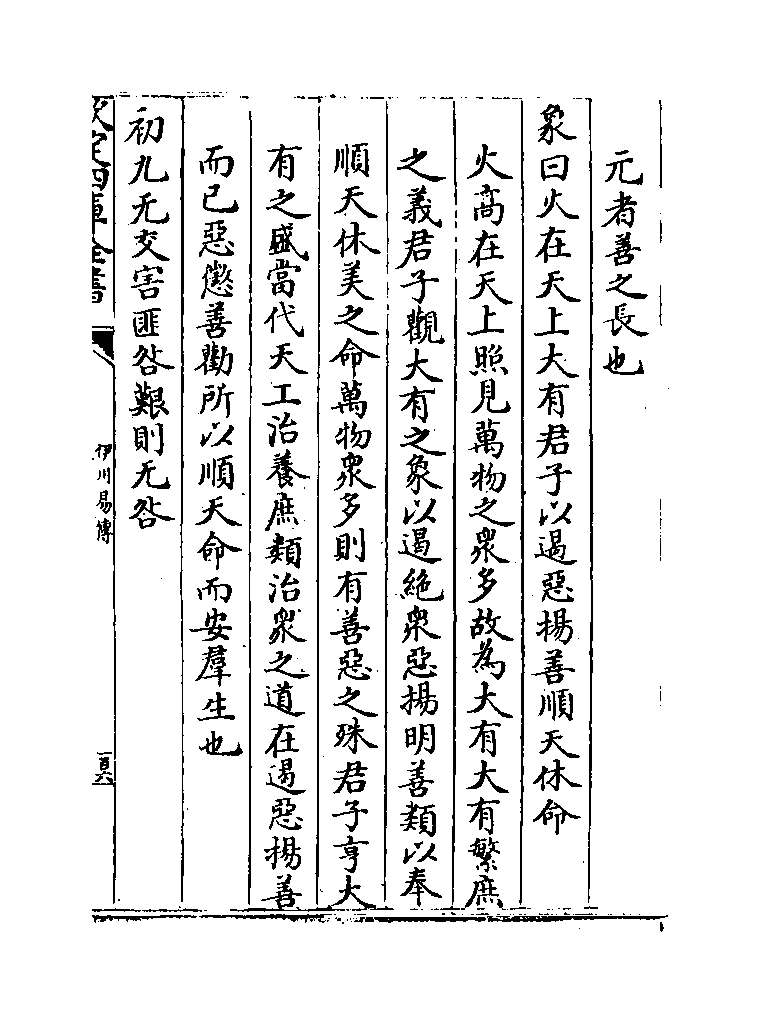 元者善之長也
象曰火在天上大有君子以遏惡揚善順天休命
火高在天上照見萬物之衆多故為大有大有繁庶
之義君子觀大有之象以遏絶衆惡揚明善類以奉
順天休美之命萬物衆多則有善惡之殊君子亨大
有之盛當代天工治養庶類治衆之道在遏惡揚善
而已惡懲善勸所以順天命而安羣生也
初九无交害匪咎艱則无咎
欽定四庫全書
伊川易傳
一百六